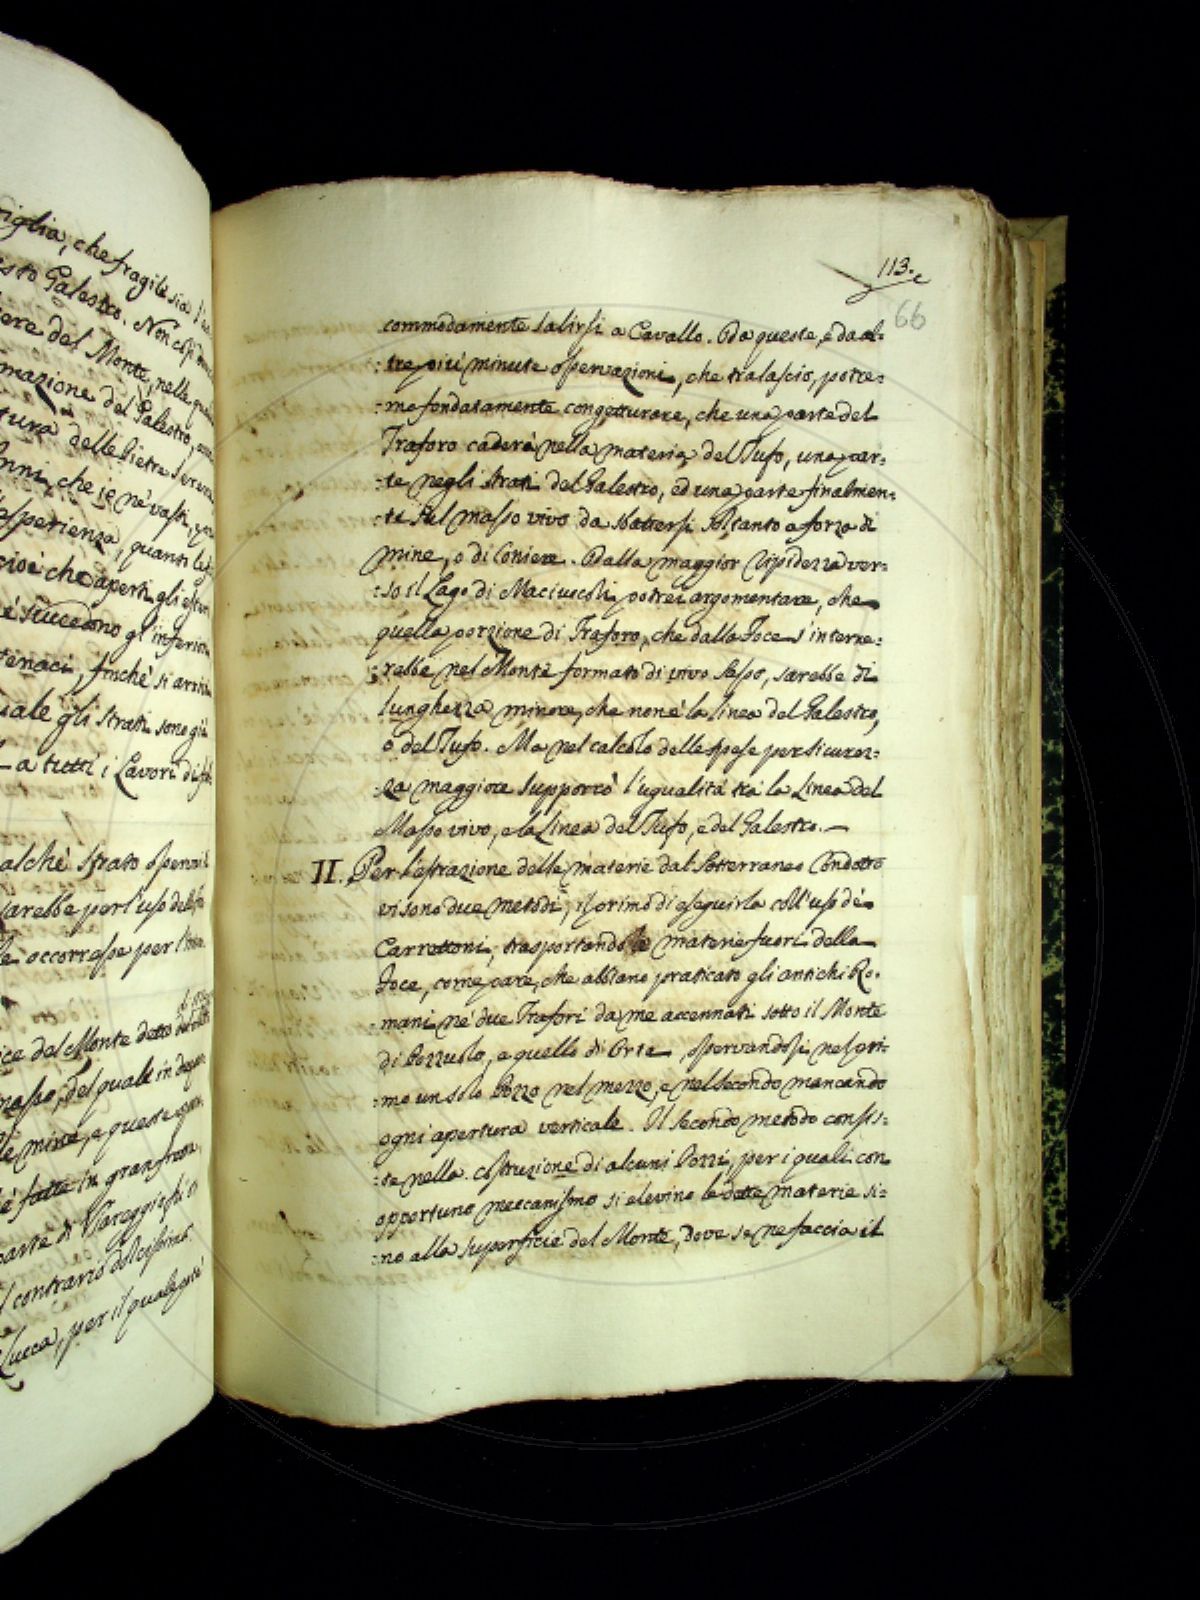 viglia, che fragile sia l'
esto Galestro. Non così
ere del Monte, nelle qua
mazione del Galestro,
tura delle Pietre Serene
nni, che
esperienza, quanto le
cioè che aperti gli
e succedono gl'inferiori
tenaci, finchè si arriva
uale gli strati sono già
a tutti i Lavori di
alchè strato
sarebbe per l'uso delle
le occorresse per l'
ice del Monte detto
masso, del quale in
le mine, e queste
è fatte in gran
parte di Viareggio
l contrario dolcissimo
Lucca, per il quale
113.
66
commodamente salirsi a Cavallo. Da queste, e da al-
:tre più minute osservazioni, che tralascio, potre-
:mo fondatamente congetturare, che una parte del
Traforo caderà nella materia del Tufo, una par-
:te negli strati del Galestro, ed una parte finalmen-
:te nel masso vivo da sbattersi soltanto a forza di
mine, o di Coniere. Dalla maggior ripidezza ver-
:so il Lago di Maciuccoli potrei argomentare, che
quella porzione di Traforo, che dalla Foce s'interne-
:rebbe nel Monte formato di vivo sasso, sarebbe di
lunghezza minore, che non è la linea del Galestro,
o del Tufo. Ma nel calcolo delle spese per sicurez-
:za maggiore supporrò l'ugualità trà la Linea del
Masso vivo, e la Linea del Tufo, e del Galestro.—
II. Per l'estrazione delle materie dal Sotterraneo Condotto
vi sono due metodi; il primo di eseguirla coll'uso dè
Carrettoni, trasportando le materie fuori della
Foce, come pare, che abbiano praticato gli antichi Ro-
:mani nè due Trafori da me accennati sotto il Monte
di Pozzuolo, e quello di Orte, osservandosi nel pri-
:mo un solo Pozzo nel mezzo, e nel secondo mancando
ogni apertura verticale. Il secondo metodo consis-
:te nella costruzione di alcuni Pozzi, per i quali con
opportuno meccanismo si elevino le dette materie si-
:no alla superficie del Monte, dove se ne faccia il